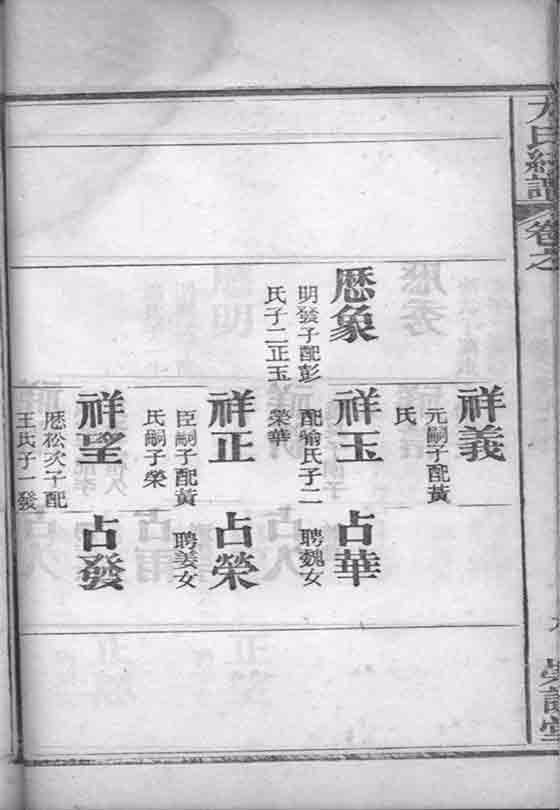 卷之
祥義
元嗣子配黃
氏
厯象
明發子配彭
氏子二正玉
祥玉
配喻氏子二
榮華
占華
聘魏女
祥正
臣嗣子配黃
氏嗣子榮
占榮
聘姜女
祥望
厯松次子配
王氏子一發
占發